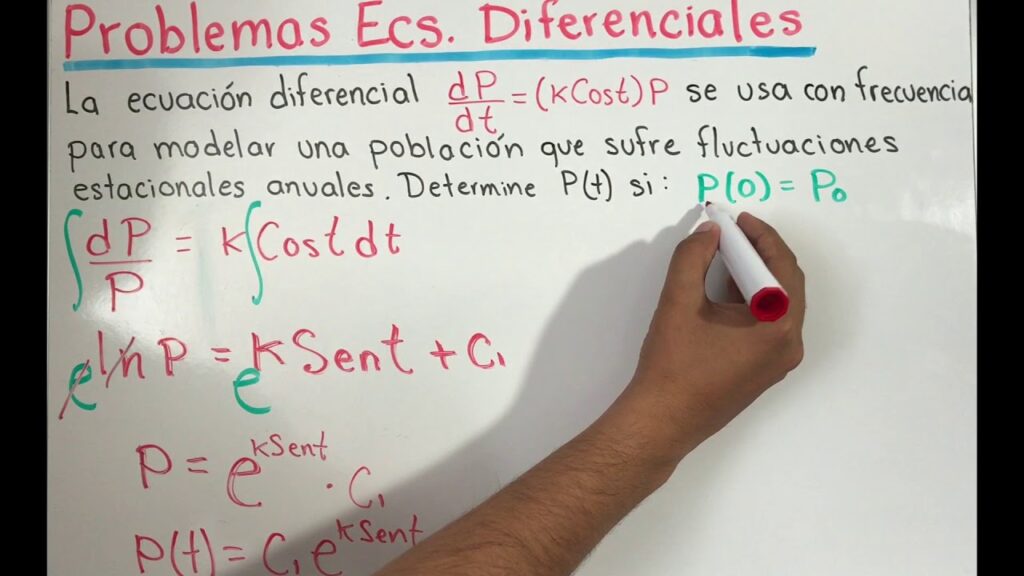 Problemas Ecs. Diferenciales
La ecuación diferencial dP/dt = (kCost)P se usa con frecuencia
para modelar una población que sufre fluctuaciones
estacionales anuales. Determine P(t) si: P(0) = P₀
∫ dP/P = k∫Cost dt
e^lnP = e^kSent + C₁
P = e^kSent · C₁
P(t) = C₁e^kSent